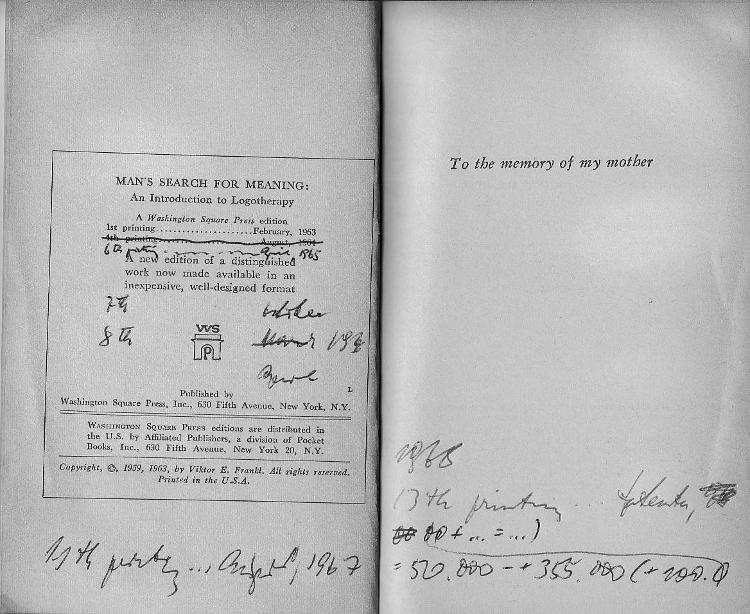 MAN'S SEARCH FOR MEANING:
An Introduction to Logotherapy
A Washington Square Press edition
1st printing......................February, 1963
4th printing August, 1964
6th printing April, 1965
A new edition of a distinguished
work now made available in an
inexpensive, well-designed format
7th October
8th March
April
WS
P
L
Published by
Washington Square Press, Inc., 630 Fifth Avenue, New York, N.Y.
WASHINGTON SQUARE PRESS editions are distributed in
the U.S. by Affiliated Publishers, a division of Pocket
Books, Inc., 630 Fifth Avenue, New York 20, N.Y.
Copyright, ©, 1959, 1963, by Viktor E. Frankl. All rights reserved.
Printed in the U.S.A.
11th printing ... August, 1967
To the memory of my mother
1968
13th printing ...
+ ... = ...)
= 50.000 - + 355.000 (+ 100.0